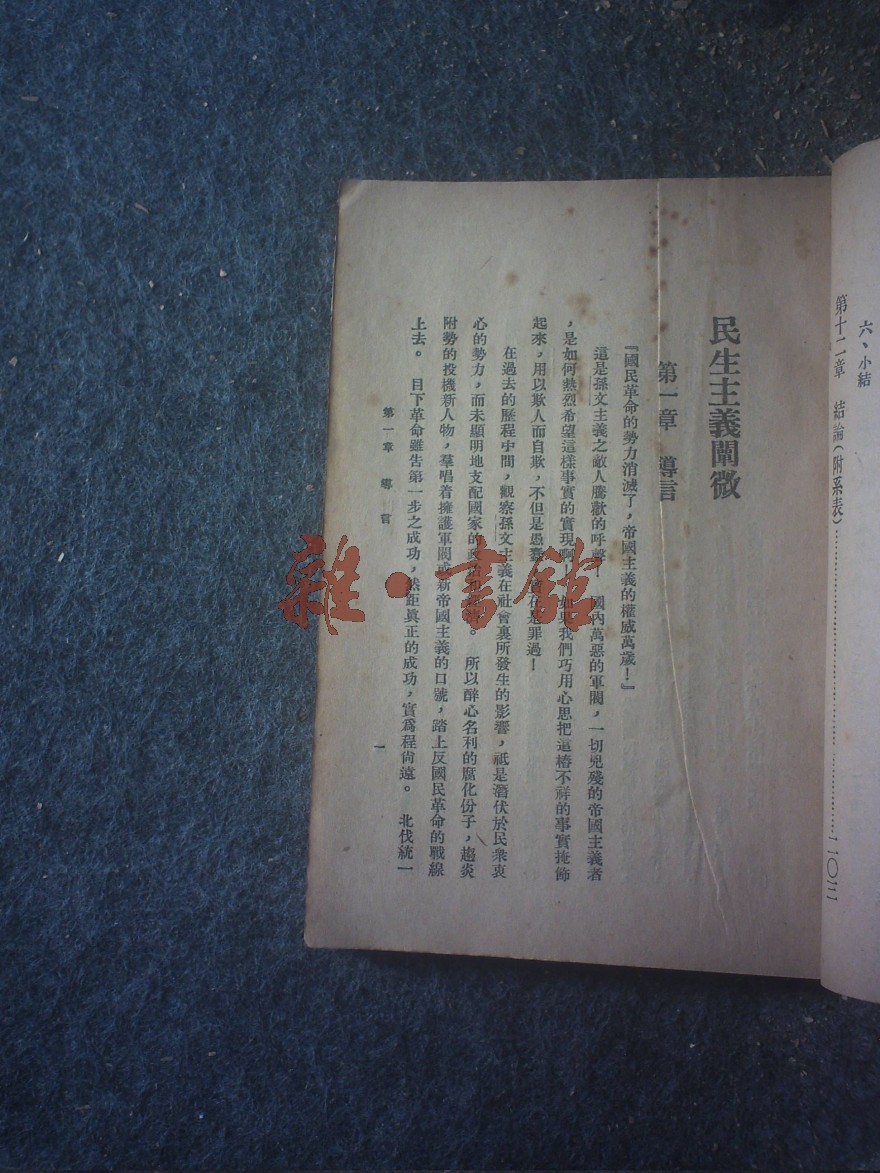 六、小結
第十二章　結論(附系表)……………………………二〇三
民生主義闡微
第一章　導言
『國民革命的勢力消滅了，帝國主義的權威萬歲！』
這是孫文主義之敵人騰歡的呼聲！　國內萬惡的軍閥，一切兇殘的帝國主義者
，是如何熱烈希望這樣事實的實現啊！　如果我們巧用心思把這樁不祥的事實掩飾
起來，用以欺人而自欺，不但是愚蠢，實在是罪過！
在過去的歷程中間，觀察孫文主義在社會裏所發生的影響，祗是潛伏於民衆衷
心的勢力，而未顯明地支配國家的政治　　。　所以醉心名利的腐化份子，趨炎
附勢的投機新人物，羣唱着擁護軍閥或新帝國主義的口號，踏上反國民革命的戰線
上去。　目下革命雖告第一步之成功，然距眞正的成功，實爲程尙遠。　北伐統一
第一章　導言
一
雜·書館